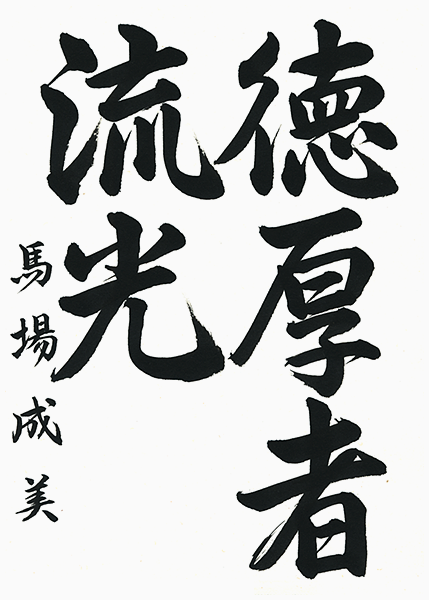 徳厚者
流光
馬場成美